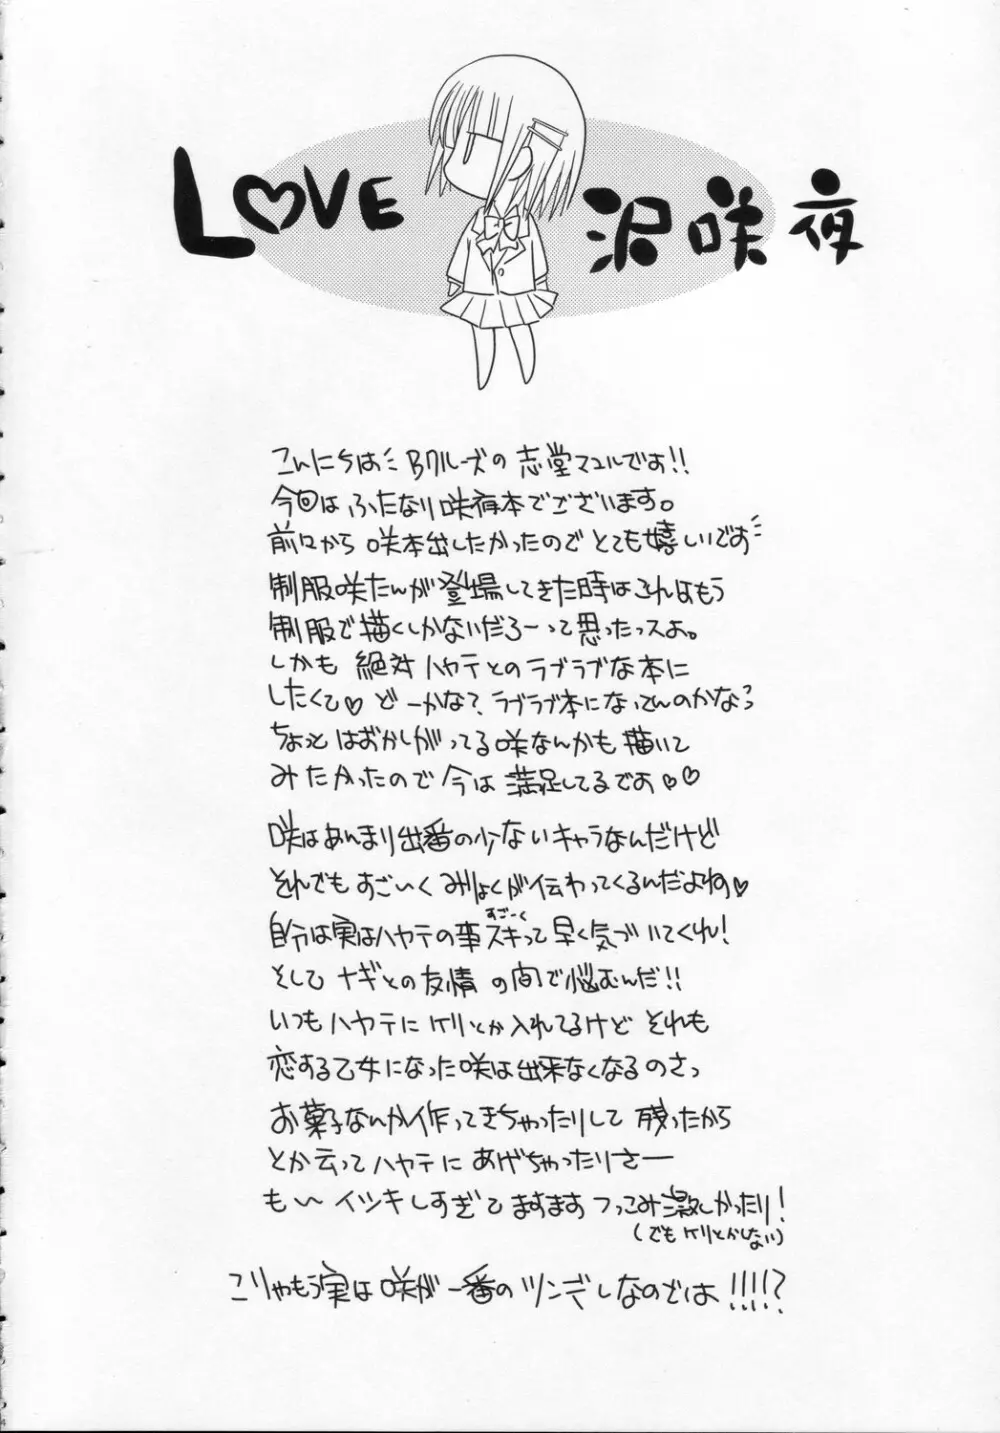 LOVE 沢咲夜
こんにちは Bクルーズの 志堂マユルです!!
今回は ふたなり咲夜本でございます。
前々から 咲本出したかったので とても嬉しいです
制服咲たんが登場してきた時はこれはもう
制服で描くしかないだろーって思ったっスよ。
しかも 絶対ハヤテとのラブラブな本に
したくて♡ どーかな?ラブラブ本になってんのかなっ
ちょっとはおかしがってる咲なんかも描いて
みたかったので今は満足してるです♡♡
咲はあんまり出番の少ないキャラなんだけど
それでもすごいくみりょくが伝わってくるんだよね♡
自分は実はハヤテの事スキって早く気づいてくれ!
すごーく
そしてナギとの友情の間で悩むんだ!!
いつもハヤテにケリとか入れてるけど それも
恋する乙女になった咲は出来なくなるのさっ
お菓子なんか作ってきちゃったりして 残ったから
とか云ってハヤテに あげちゃったりさー
も〜イツキしすぎてますますつっこみ激しかったり!
(でもケリとかしない)
こりゃもう実は咲が一番のツンデレなのでは!!!!?